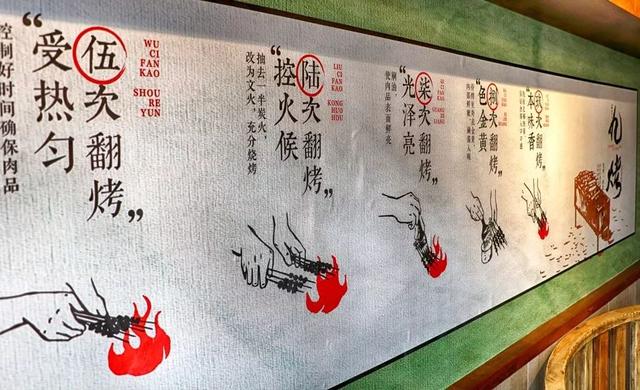 WU
CI
FAN
KAO
SHOU
RE
YUN
伍次翻烤”
“受热匀
控制好时间确保肉品
LIU
CI
FAN
KAO
KONG
HUO
HOU
陆次翻烤”
“控火候
抽去一半炭火，
改为文火，充分烧烤
柒次翻烤”
“光泽亮
刷油，
使肉品表面鲜亮
次翻烤”
“色金黄
次翻烤”
味香
烤